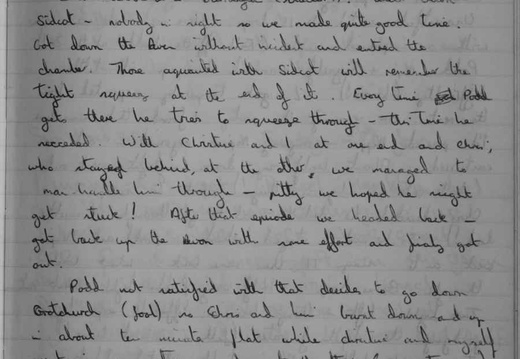 Sidcot - nobody in sight so we made quite good time.
Got down the Aven without incident and entered the
chamber. Those aquainted with Sidcot will remember the
tight squeeze at the end of it. Every time Podd
gets there he tries to squeeze through - this time he
succeeded. With Christine and I at one end and Chris,
who stayed behind, at the other, we managed to
man handle him through - pitty we hoped he might
get stuck! After that episode we headed back -
got back up the Aven with more effort and finaly got
out.
Podd not satisfied with that decides to go down
Goatchurch (fool) so Chris and him burst down and up
in about ten minutes flat while Christine and myself